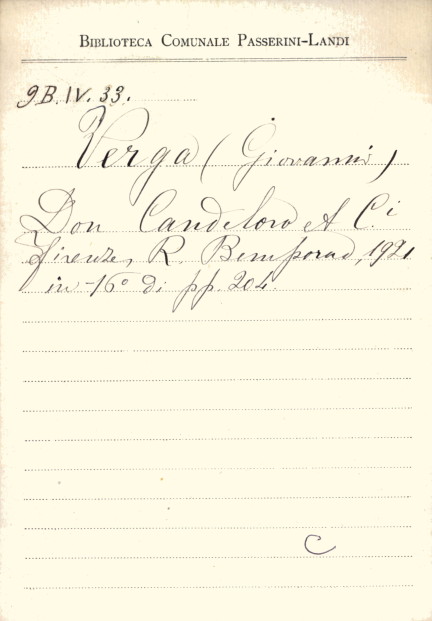 BIBLIOTECA COMUNALE PASSERINI-LANDI
9B.IV.33.
Verga (Giovanni)
Don Candeloro et C.i
Firenze, R. Bemporad, 1921
in-16° di pp. 204.
C